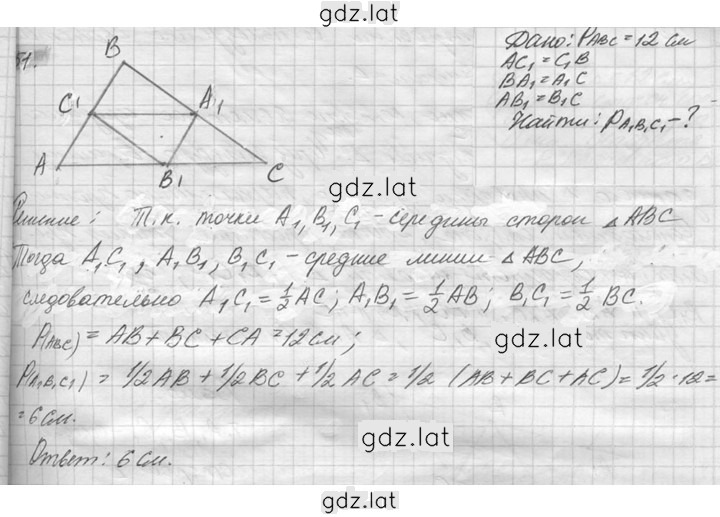 gdz.lat
51.
Дано: P ABC = 12 см
AC₁ = C₁B
BA₁ = A₁C
AB₁ = B₁C
Найти: P A₁B₁C₁ - ?
B
C₁
A₁
A
B₁
C
gdz.lat
Решение: Т.к. точки A₁, B₁, C₁ - середины сторон △ABC
Тогда A₁C₁, A₁B₁, B₁C₁ - средние линии △ABC,
следовательно A₁C₁ = ½ AC; A₁B₁ = ½ AB; B₁C₁ = ½ BC.
P(ABC) = AB + BC + CA = 12 см;
gdz.lat
P(A₁B₁C₁) = 1/2 AB + 1/2 BC + 1/2 AC = 1/2 (AB + BC + AC) = 1/2 · 12 =
= 6 см.
gdz.lat
Ответ: 6 см.
gdz.lat